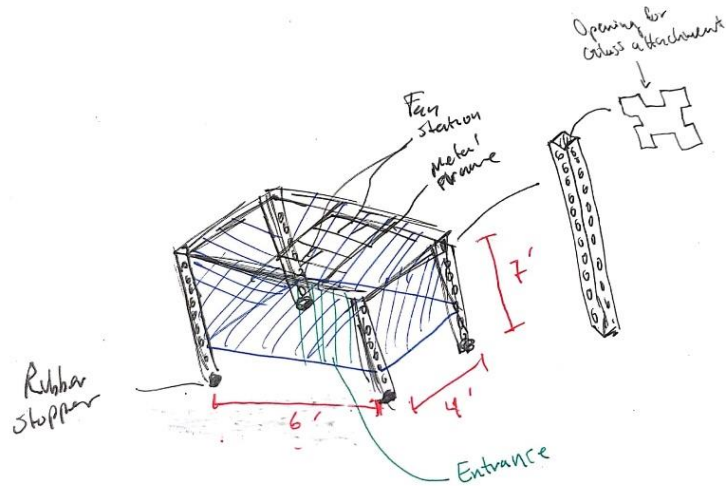 Opening for
Glass attachment
Fan
Station
Metal
Frame
7'
Rubber
Stopper
6'
4'
Entrance